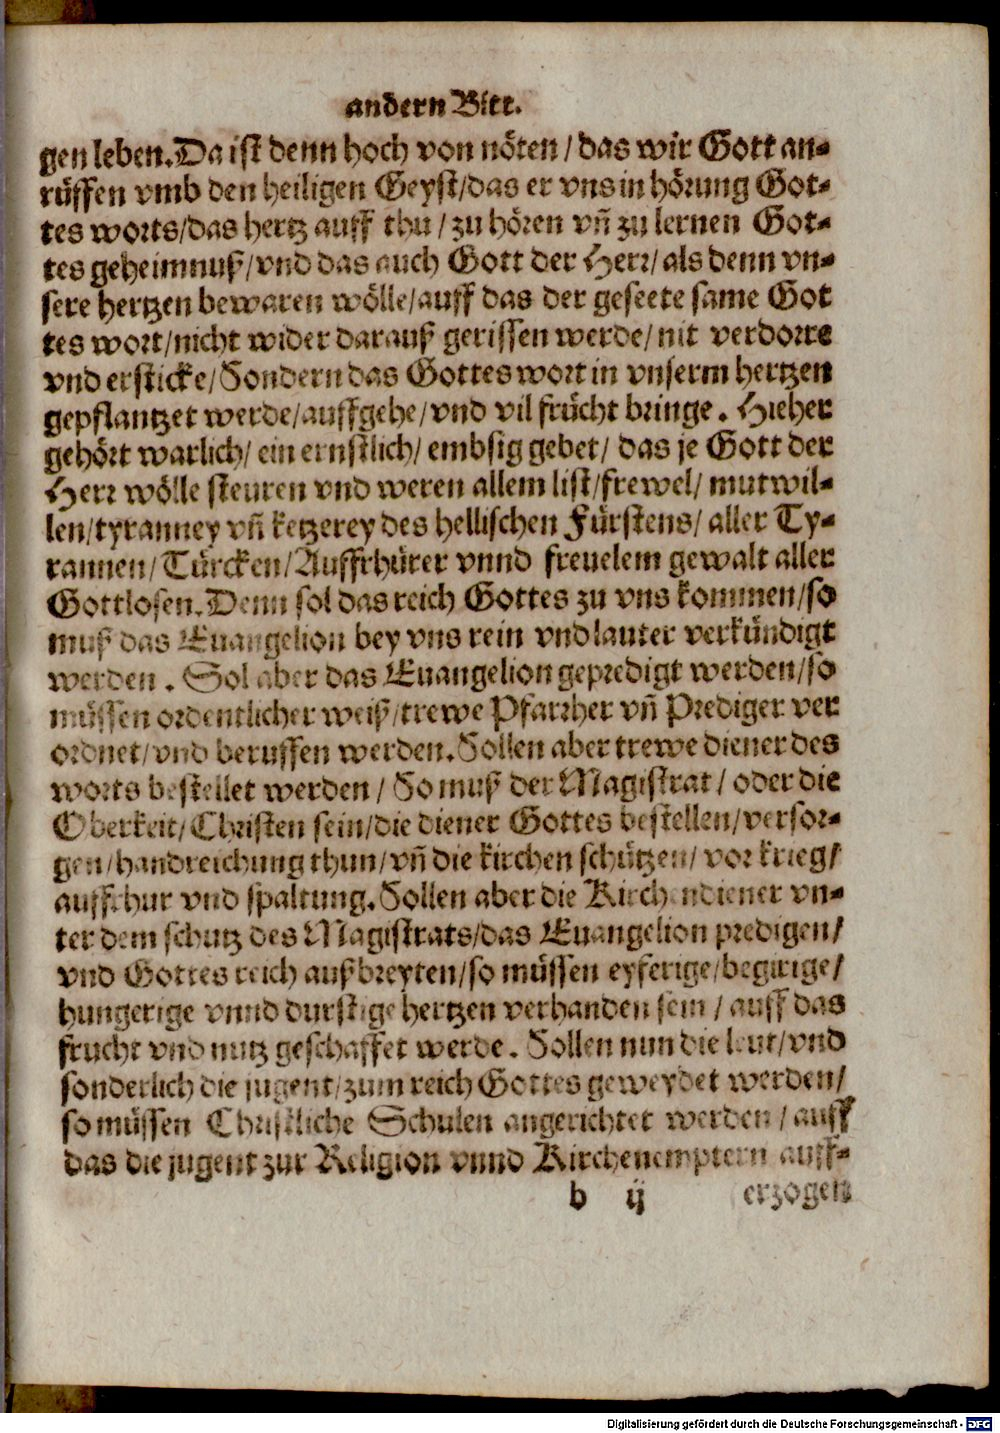 andern Bitt.
gen leben. Da ist denn hoch von nöten / das wir Gott an-
rüffen vmb den heiligen Geyst/das er vns in hörung Got-
tes worts/das hertz auff thu / zu hören vñ zu lernen Got-
tes geheimnuß/vnd das auch Gott der Herr/als denn vn-
sere hertzen bewaren wölle/auff das der geseete same Got
tes wort/nicht wider darauß gerissen werde/ nit verdorre
vnd ersticke/Sondern das Gottes wort in vnserm hertzen
gepflantzet werde/auffgehe/vnd vil frücht bringe. Hieher
gehört warlich/ ein ernstlich/ embsig gebet/ das je Gott der
Herr wölle steuren vnd weren allem list/frewel/ mutwil-
len/tyranney vñ ketzerey des hellischen Fürstens/ aller Ty-
rannen/ Türcken/ Auffrhürer vnnd freuelem gewalt aller
Gottlosen. Denn sol das reich Gottes zu vns kommen/so
muß das Euangelion bey vns rein vnd lauter verkündigt
werden. Sol aber das Euangelion gepredigt werden/so
müssen ordentlicher weiß/trewe Pfarrher vñ Prediger ver
ordnet/vnd beruffen werden. Sollen aber trewe diener des
worts bestellet werden / So muß der Magistrat / oder die
Oberkeit/ Christen sein/die diener Gottes bestellen/versor-
gen/handreichung thun/vñ die kirchen schützen/ vor krieg/
auffrhur vnd spaltung. Sollen aber die Kirchendiener vn-
ter dem schutz des Magistrats/das Euangelion predigen/
vnd Gottes reich außbreyten/so müssen eyferige/begirige/
hungerige vnnd durstige hertzen verhanden sein / auff das
frucht vnd nutz geschaffet werde. Sollen nun die leut/vnd
sonderlich die jugent/zum reich Gottes geweydet werden/
so müssen Christliche Schulen angerichtet werden / auff
das die jugent zur Religion vnnd Kirchenemptern auff-
b ij erzogen
Digitalisierung gefördert durch die Deutsche Forschungsgemeinschaft - DFG